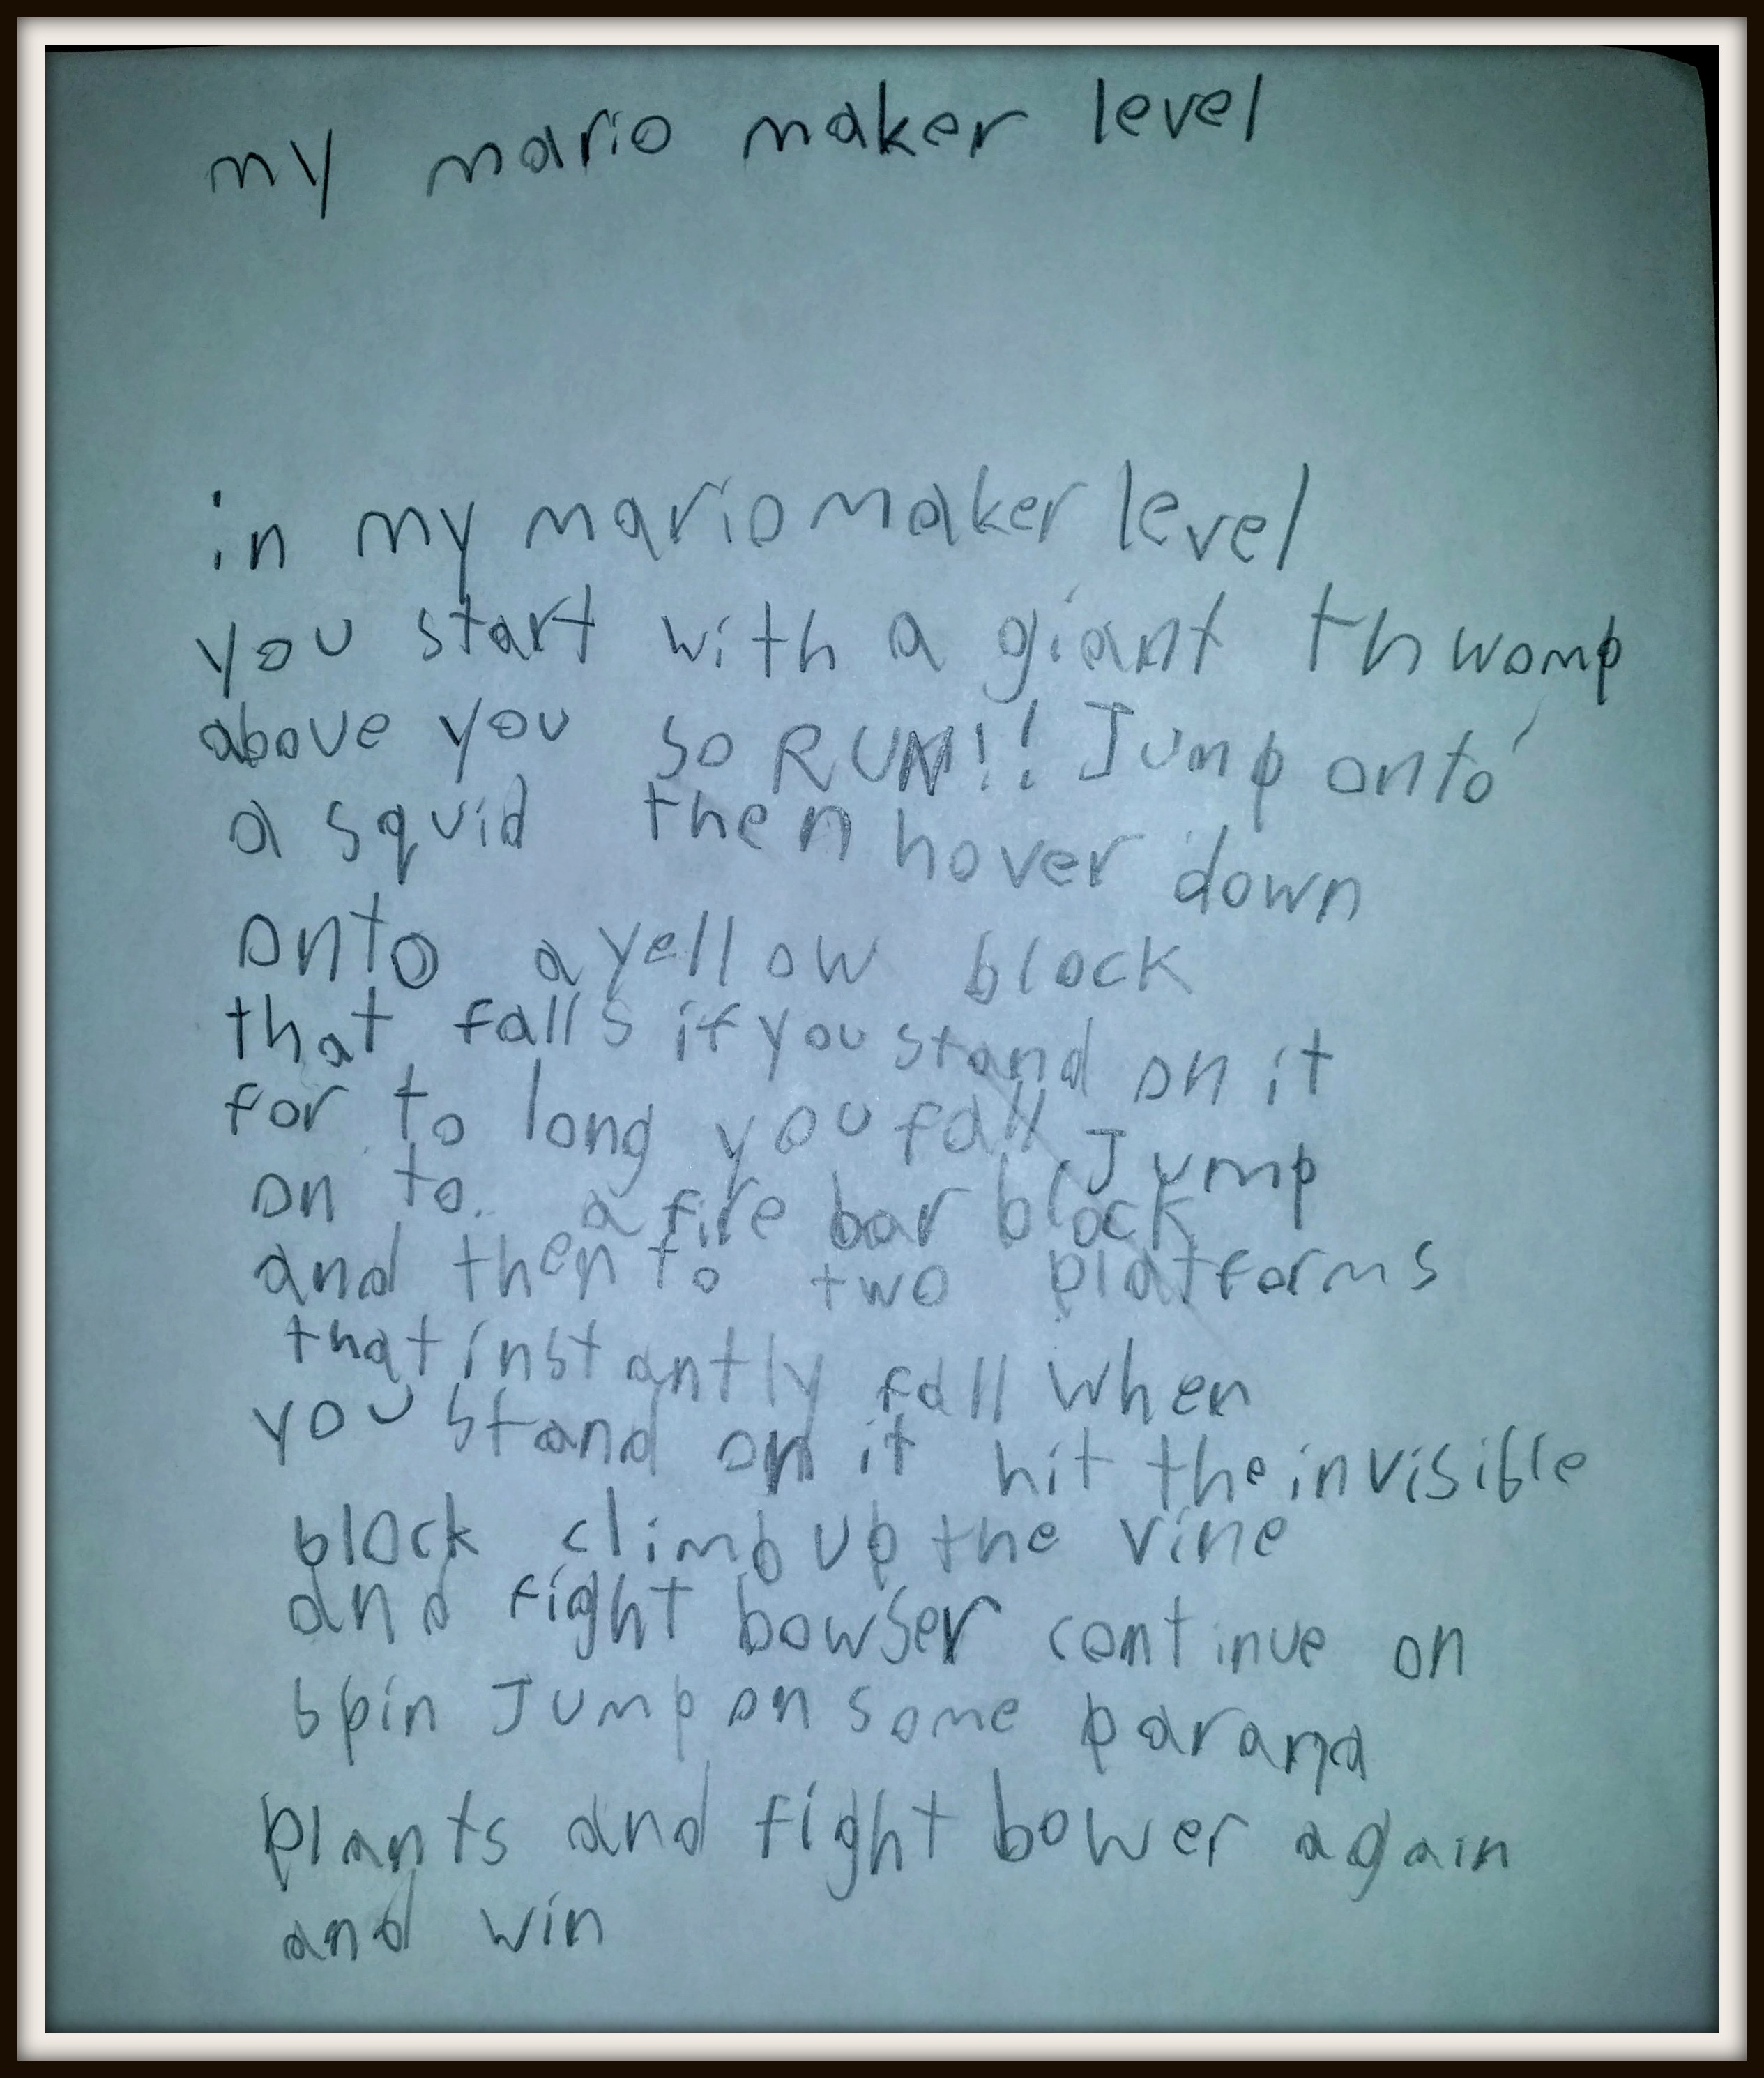 my mario maker level
in my mario maker level
you start with a giant thwomp
above you so RUN!! Jump onto
a squid then hover down
onto a yellow block
that falls if you stand on it
for to long you fall Jump
on to a fire bar block
and then to two platforms
that instantly fall when
you stand on it hit the invisible
block climb up the vine
and fight bowser continue on
spin Jump on some parana
plants and fight bower again
and win